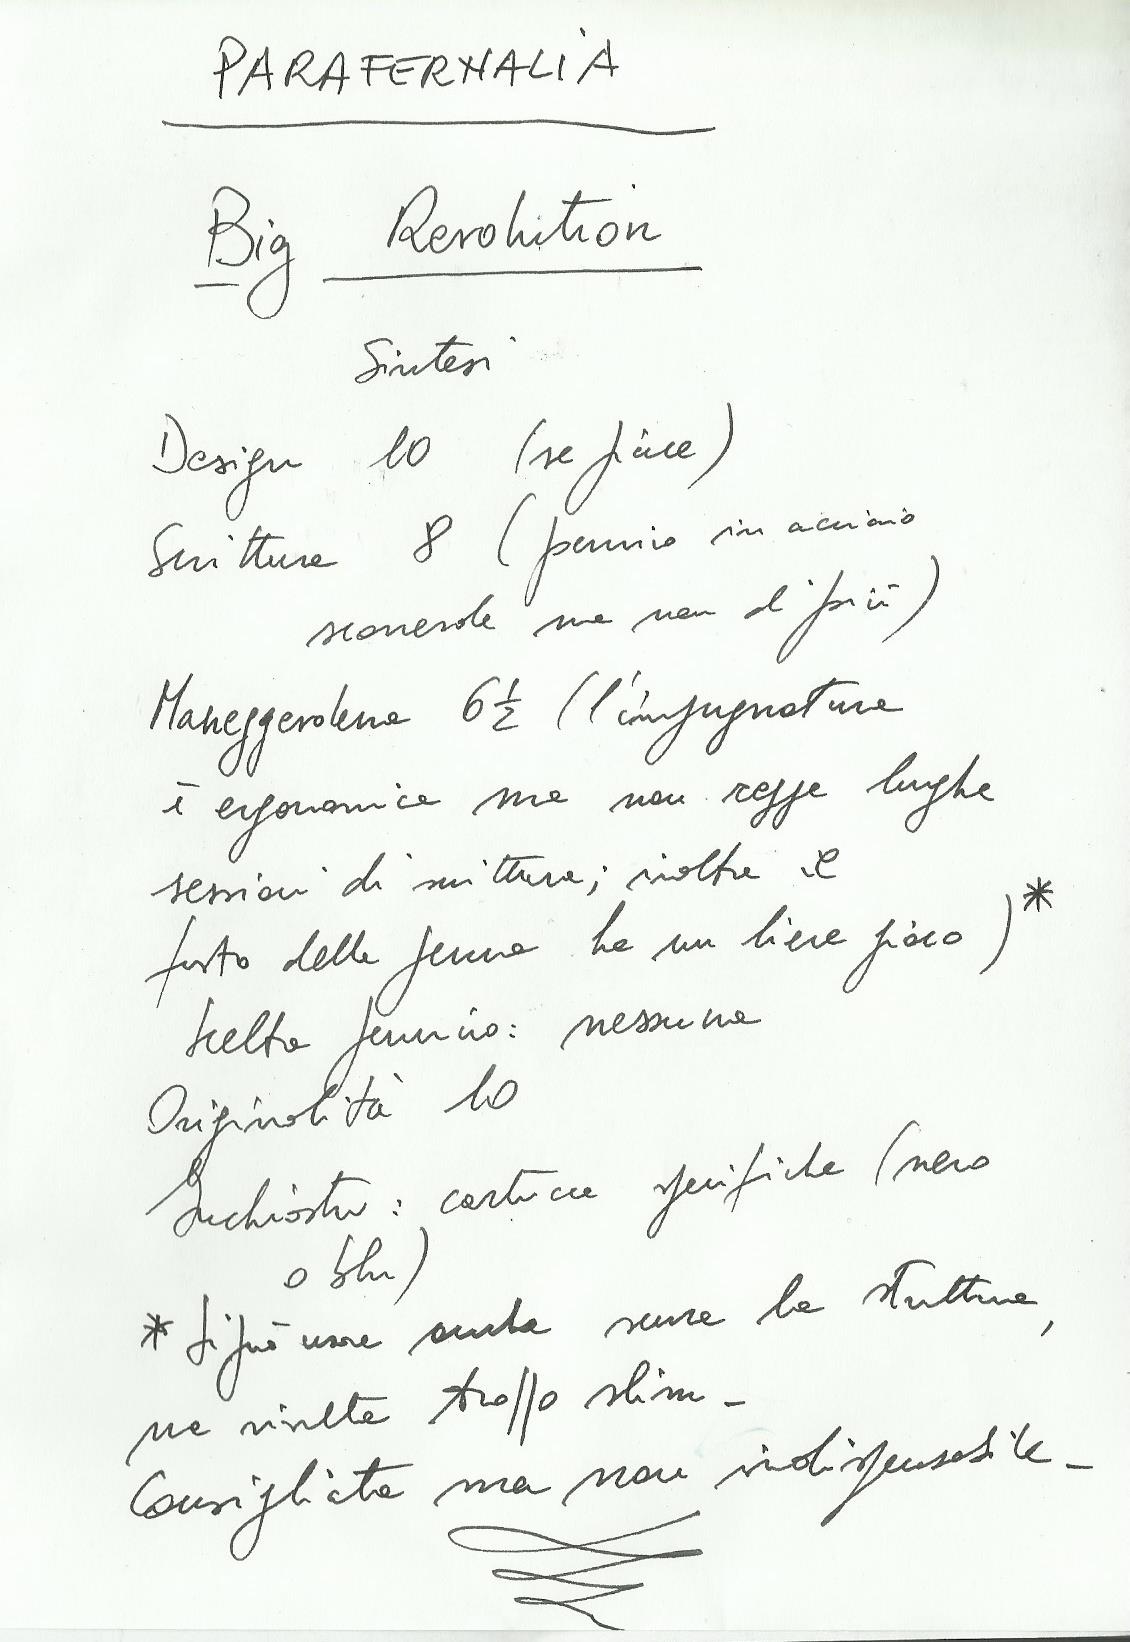 PARAFERNALIA
Big Revolution
Sintesi
Design 10 (se piace)
Scrittura 8 (pennino in acciaio
scorrevole ma non di più)
Maneggevolezza 6 ½ (l'impugnatura
è ergonomica ma non regge lunghe
sessioni di scrittura; inoltre il
fusto della penna ha un lieve gioco)*
Scelta pennino: nessuna
Originalità 10
Inchiostro: cartucce specifiche (nero
o blu)
* Si può usare anche senza la struttura,
ma risulta troppo slim -
Consigliata ma non indispensabile -